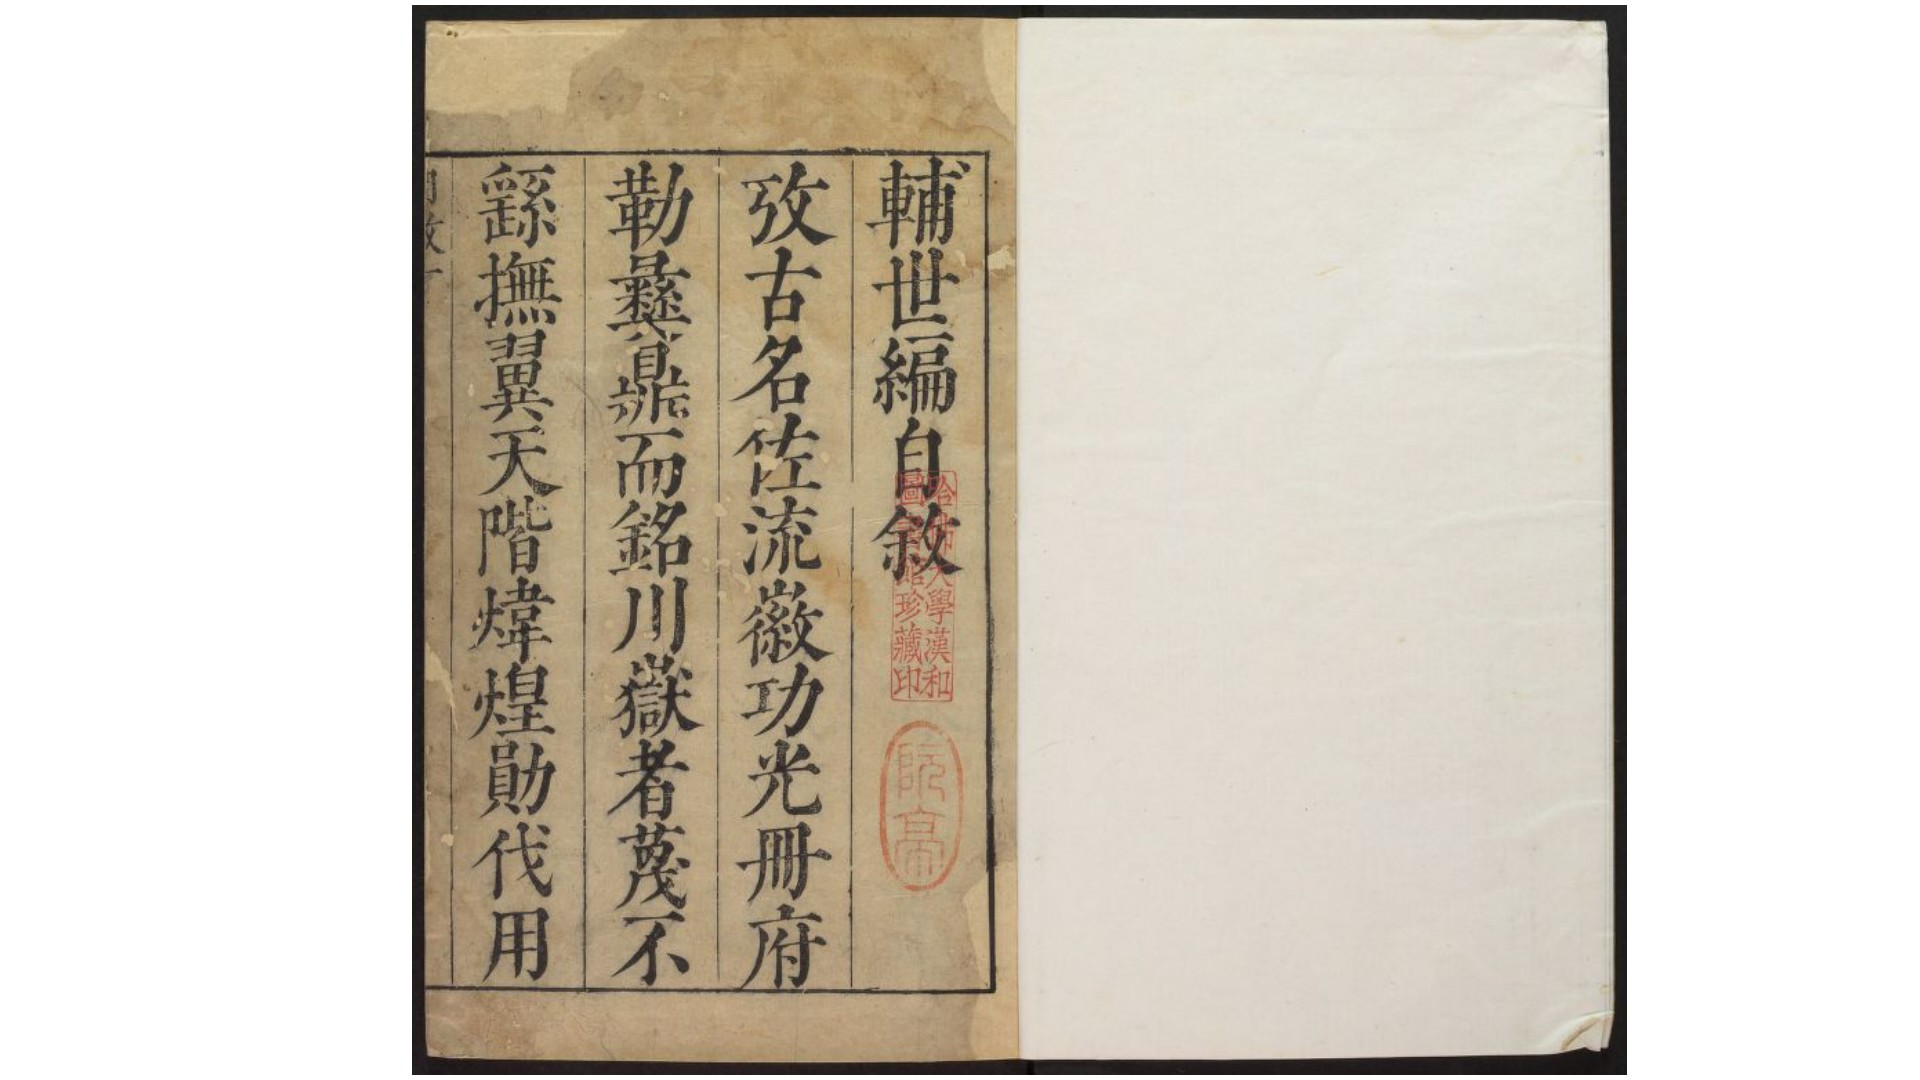 輔世編自敘
攷古名佐流徽功光冊府
勒彝鼎而銘川嶽者蔑不
繇撫翼天階煒煌勛伐用
哈佛大學漢和
圖書館珍藏印
阮亭